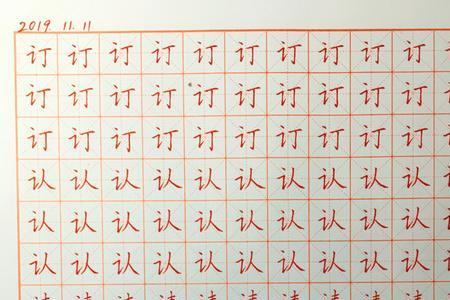 2019. 11. 11
订订订订订订订订订订
订订订订订订订订订订
订订订订订订订订订订
认认认认认认认认认认
认认认认认认认认认认
认认认认认认认认认认